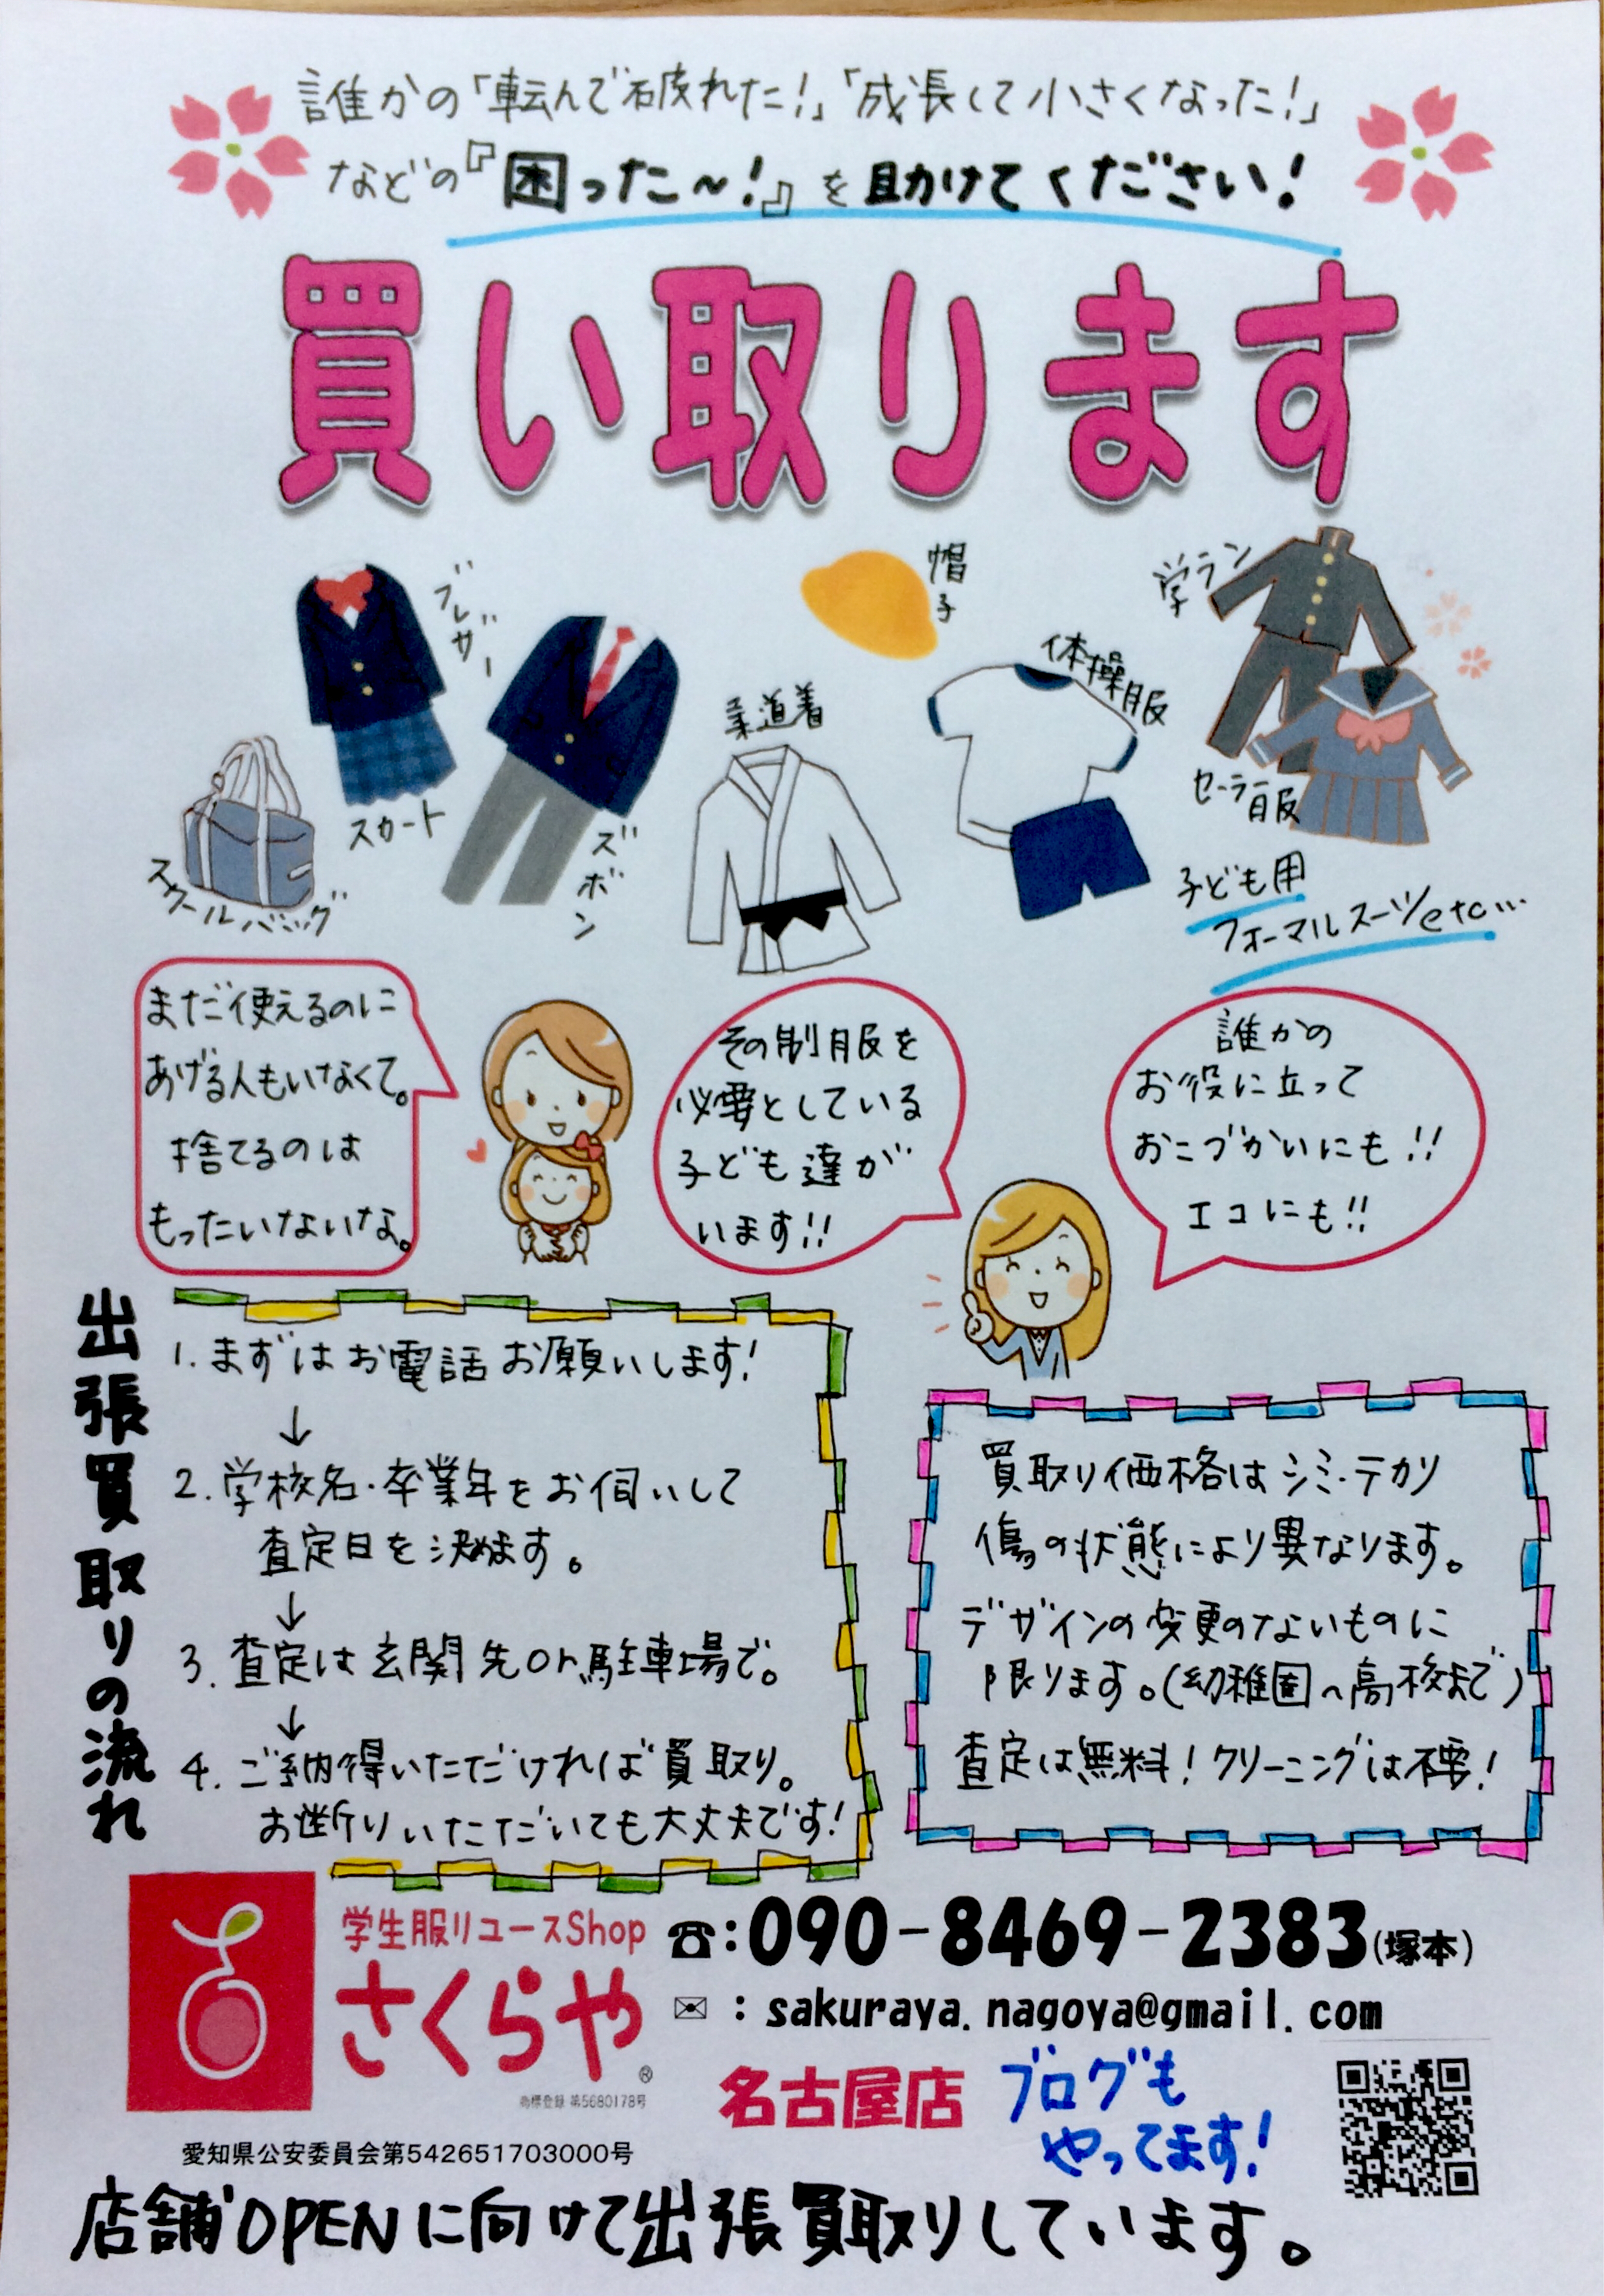 誰かの「転んで破れた!」「成長して小さくなった!」
などの『困った～!』を助けてください!
買い取ります
ブレザー
帽子
学ラン
体操服
柔道着
セーラー服
スカート
ズボン
スクールバッグ
子ども用
フォーマルスーツetc…
まだ使えるのに
あげる人もいなくて。
捨てるのは
もったいないな。
その制服を
必要としている
子ども達が
います!!
誰かの
お役に立って
おこづかいにも!!
エコにも!!
出張買取りの流れ
1. まずはお電話お願いします!
↓
2. 学校名・卒業年をお伺いして
査定日を決めます。
↓
3. 査定は玄関先or駐車場で。
↓
4. ご納得いただければ買取り。
お断りいただいても大丈夫です!
買取り価格はシミ・テカリ
傷の状態により異なります。
デザインの変更のないものに
限ります。(幼稚園〜高校まで)
査定は無料!クリーニングは不要!
学生服リユースShop
さくらや
®
商標登録 第5680178号
☎:090-8469-2383(塚本)
✉ : sakuraya.nagoya@gmail.com
名古屋店
ブログも
やってます!
愛知県公安委員会第542651703000号
店舗OPENに向けて出張買取りしています。